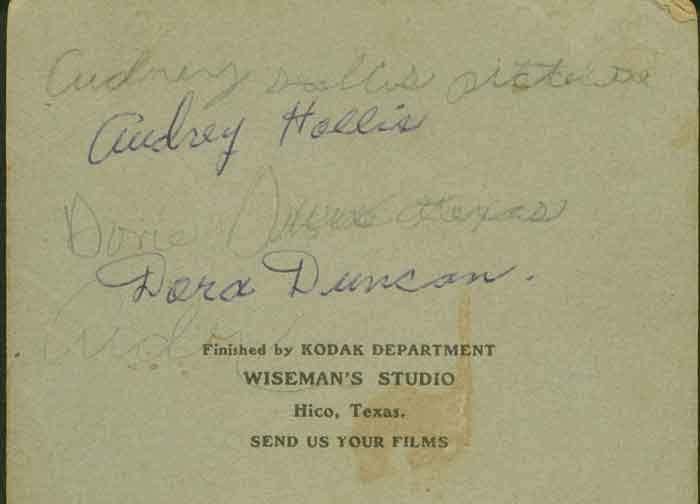 Audrey Hollis picture
Audrey Hollis
Dora Duncan.
Finished by KODAK DEPARTMENT
WISEMAN'S STUDIO
Hico, Texas.
SEND US YOUR FILMS